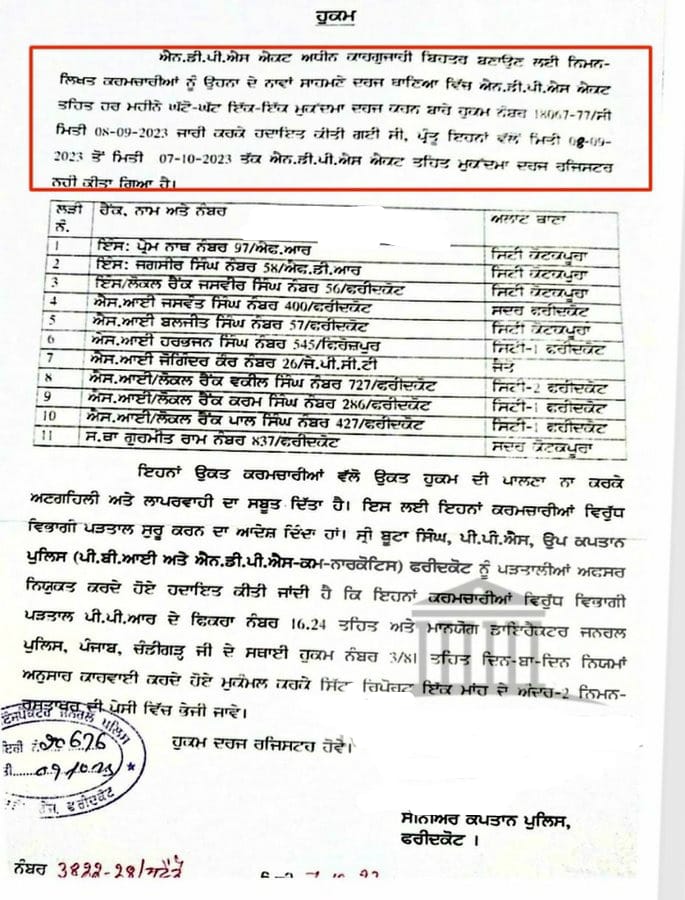 ਹੁਕਮ
ਐਨ.ਡੀ.ਪੀ.ਐਸ ਐਕਟ ਅਧੀਨ ਕਾਰਗੁਜਾਰੀ ਬਿਹਤਰ ਬਣਾਉਣ ਲਈ ਨਿਮਨ-
ਲਿਖਤ ਕਰਮਚਾਰੀਆਂ ਨੂੰ ਉਹਨਾ ਦੇ ਨਾਵਾਂ ਸਾਹਮਣੇ ਦਰਜ ਥਾਣਿਆ ਵਿੱਚ ਐਨ.ਡੀ.ਪੀ.ਐਸ ਐਕਟ
ਤਹਿਤ ਹਰ ਮਹੀਨੇ ਘੱਟੋ-ਘੱਟ ਇੱਕ-ਇੱਕ ਮੁਕੱਦਮਾ ਦਰਜ ਕਰਨ ਬਾਰੇ ਹੁਕਮ ਨੰਬਰ 18067-77/ਸੀ
ਮਿਤੀ 08-09-2023 ਜਾਰੀ ਕਰਕੇ ਹਦਾਇਤ ਕੀਤੀ ਗਈ ਸੀ, ਪ੍ਰੰਤੂ ਇਹਨਾਂ ਵੱਲੋਂ ਮਿਤੀ 08-09-
2023 ਤੋਂ ਮਿਤੀ 07-10-2023 ਤੱਕ ਐਨ.ਡੀ.ਪੀ.ਐਸ ਐਕਟ ਤਹਿਤ ਮੁਕੱਦਮਾ ਦਰਜ ਰਜਿਸਟਰ
ਨਹੀ ਕੀਤਾ ਗਿਆ ਹੈ।
ਲੜੀ ਨੰ. ਰੈਂਕ, ਨਾਮ ਅਤੇ ਨੰਬਰ ਅਲਾਟ ਥਾਣਾ
1 ਇੰਸ: ਪ੍ਰੇਮ ਨਾਥ ਨੰਬਰ 97/ਐਫ.ਆਰ ਸਿਟੀ ਕੋਟਕਪੂਰਾ
2 ਇੰਸ: ਜਗਸੀਰ ਸਿੰਘ ਨੰਬਰ 58/ਐਫ.ਡੀ.ਆਰ ਸਿਟੀ ਕੋਟਕਪੂਰਾ
3 ਇੰਸ/ਲੋਕਲ ਰੈਂਕ ਜਸਵੀਰ ਸਿੰਘ ਨੰਬਰ 56/ਫਰੀਦਕੋਟ ਸਿਟੀ ਕੋਟਕਪੂਰਾ
4 ਐਸ.ਆਈ ਜਸਵੰਤ ਸਿੰਘ ਨੰਬਰ 400/ਫਰੀਦਕੋਟ ਸਦਰ ਫਰੀਦਕੋਟ
5 ਐਸ.ਆਈ ਬਲਜੀਤ ਸਿੰਘ ਨੰਬਰ 57/ਫਰੀਦਕੋਟ ਸਿਟੀ ਕੋਟਕਪੂਰਾ
6 ਐਸ.ਆਈ ਹਰਭਜਨ ਸਿੰਘ ਨੰਬਰ 545/ਫਿਰੋਜਪੁਰ ਸਿਟੀ-1 ਫਰੀਦਕੋਟ
7 ਐਸ.ਆਈ ਜੋਗਿੰਦਰ ਕੌਰ ਨੰਬਰ 26/ਜੇ.ਪੀ.ਸੀ.ਟੀ ਜੈਤੋ
8 ਐਸ.ਆਈ/ਲੋਕਲ ਰੈਂਕ ਵਕੀਲ ਸਿੰਘ ਨੰਬਰ 727/ਫਰੀਦਕੋਟ ਸਿਟੀ-2 ਫਰੀਦਕੋਟ
9 ਐਸ.ਆਈ/ਲੋਕਲ ਰੈਂਕ ਕਰਮ ਸਿੰਘ ਨੰਬਰ 286/ਫਰੀਦਕੋਟ ਸਿਟੀ-1 ਫਰੀਦਕੋਟ
10 ਐਸ.ਆਈ/ਲੋਕਲ ਰੈਂਕ ਪਾਲ ਸਿੰਘ ਨੰਬਰ 427/ਫਰੀਦਕੋਟ ਸਿਟੀ-1 ਫਰੀਦਕੋਟ
11 ਸ.ਥਾ ਗੁਰਮੀਤ ਰਾਮ ਨੰਬਰ 837/ਫਰੀਦਕੋਟ ਸਦਰ ਕੋਟਕਪੂਰਾ
ਇਹਨਾਂ ਉਕਤ ਕਰਮਚਾਰੀਆਂ ਵੱਲੋ ਉਕਤ ਹੁਕਮ ਦੀ ਪਾਲਣਾ ਨਾ ਕਰਕੇ
ਅਣਗਹਿਲੀ ਅਤੇ ਲਾਪਰਵਾਹੀ ਦਾ ਸਬੂਤ ਦਿੱਤਾ ਹੈ। ਇਸ ਲਈ ਇਹਨਾਂ ਕਰਮਚਾਰੀਆਂ ਵਿਰੁੱਧ
ਵਿਭਾਗੀ ਪੜਤਾਲ ਸੁਰੂ ਕਰਨ ਦਾ ਆਦੇਸ਼ ਦਿੰਦਾ ਹਾਂ। ਸ੍ਰੀ ਬੂਟਾ ਸਿੰਘ, ਪੀ.ਪੀ.ਐਸ, ਉਪ ਕਪਤਾਨ
ਪੁਲਿਸ (ਪੀ.ਬੀ.ਆਈ ਅਤੇ ਐਨ.ਡੀ.ਪੀ.ਐਸ-ਕਮ-ਨਾਰਕੋਟਿਸ) ਫਰੀਦਕੋਟ ਨੂੰ ਪੜਤਾਲੀਆਂ ਅਫਸਰ
ਨਿਯੁਕਤ ਕਰਦੇ ਹੋਏ ਹਦਾਇਤ ਕੀਤੀ ਜਾਂਦੀ ਹੈ ਕਿ ਇਹਨਾਂ ਕਰਮਚਾਰੀਆਂ ਵਿਰੁੱਧ ਵਿਭਾਗੀ
ਪੜਤਾਲ ਪੀ.ਪੀ.ਆਰ ਦੇ ਫਿਕਰਾ ਨੰਬਰ 16.24 ਤਹਿਤ ਅਤੇ ਮਾਨਯੋਗ ਡਾਇਰੈਕਟਰ ਜਨਰਲ
ਪੁਲਿਸ, ਪੰਜਾਬ, ਚੰਡੀਗੜ੍ਹ ਜੀ ਦੇ ਸਥਾਈ ਹੁਕਮ ਨੰਬਰ 3/81 ਤਹਿਤ ਦਿਨ-ਬਾ-ਦਿਨ ਨਿਯਮਾਂ
ਅਨੁਸਾਰ ਕਾਰਵਾਈ ਕਰਦੇ ਹੋਏ ਮੁਕੰਮਲ ਕਰਕੇ ਸਿੱਟਾ ਰਿਪੋਰਟ ਇੱਕ ਮਾਂਹ ਦੇ ਅੰਦਰ-2 ਨਿਮਨ-
ਹਸਤਾਖਰ ਦੀ ਪੇਸੀ ਵਿੱਚ ਭੇਜੀ ਜਾਵੇ।
ਹੁਕਮ ਦਰਜ ਰਜਿਸਟਰ ਹੋਵੇ।
ਇੰਸਪੈਕਟਰ ਜਨਰਲ ਪੁਲਿਸ
20676
09/10/23
ਫਰੀਦਕੋਟ
ਸੀਨੀਅਰ ਕਪਤਾਨ ਪੁਲਿਸ,
ਫਰੀਦਕੋਟ ।
ਨੰਬਰ 3822-28/ਸਟੈਨੋ